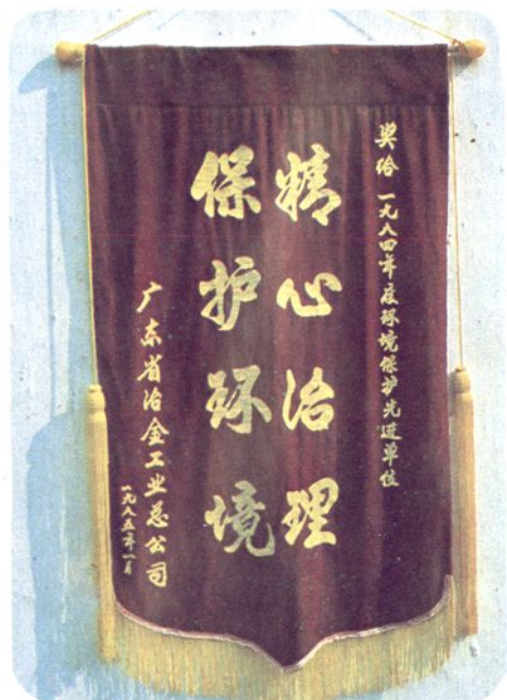 奖给 一九八四年度环境保护先进单位
精心治理
保护环境
广东省冶金工业总公司
一九八五年一月